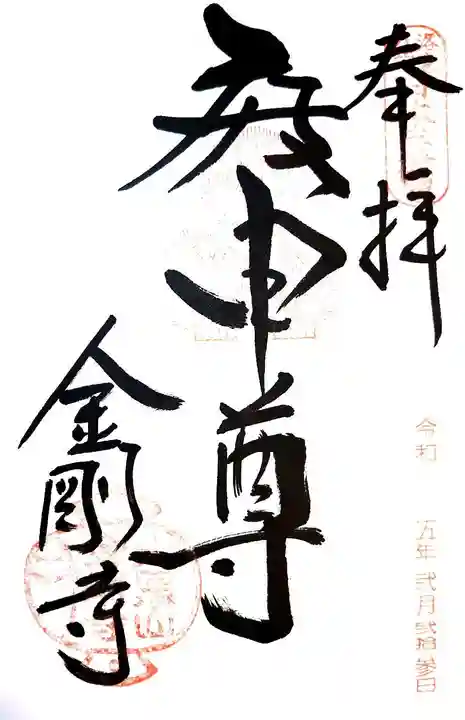 奉拝
庚申尊
金剛寺
令和 五年 弐月 弐拾参日